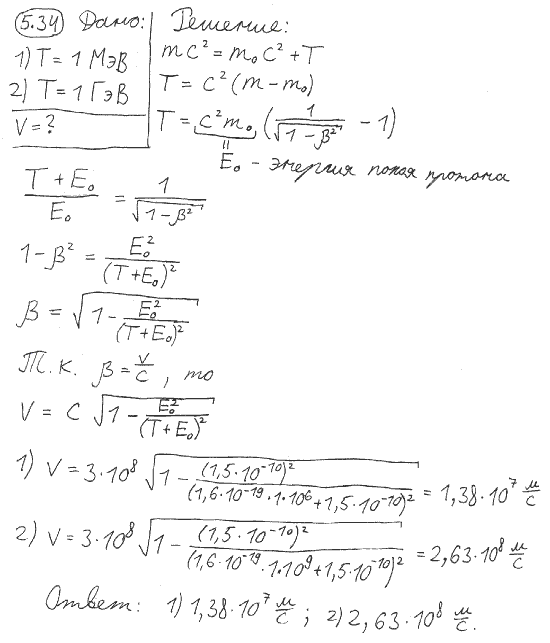 5.34 Дано: Решение:
1) T = 1 МэВ mc² = m₀c² + T
2) T = 1 ГэВ T = c²(m − m₀)
V = ? T = c²m₀ (1/√(1 − β²) − 1)
E₀ - энергия покоя протона
(T + E₀)/E₀ = 1/√(1 − β²)
1 − β² = E₀²/(T + E₀)²
β = √(1 − E₀²/(T + E₀)²)
Т.к. β = V/C, то
V = C √(1 − E₀²/(T + E₀)²)
1) V = 3·10⁸ √(1 − (1,5·10⁻¹⁰)²/(1,6·10⁻¹⁹·1·10⁶ + 1,5·10⁻¹⁰)²) = 1,38·10⁷ м/с
2) V = 3·10⁸ √(1 − (1,5·10⁻¹⁰)²/(1,6·10⁻¹⁹·1·10⁹ + 1,5·10⁻¹⁰)²) = 2,63·10⁸ м/с
Ответ: 1) 1,38·10⁷ м/с; 2) 2,63·10⁸ м/с.